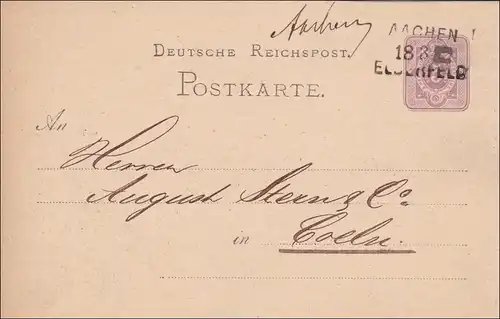 Aachen
AACHEN I
18
ELBERFELD
DEUTSCHE REICHSPOST.
POSTKARTE.
An
Herren
August Stern & Co
in Coeln.